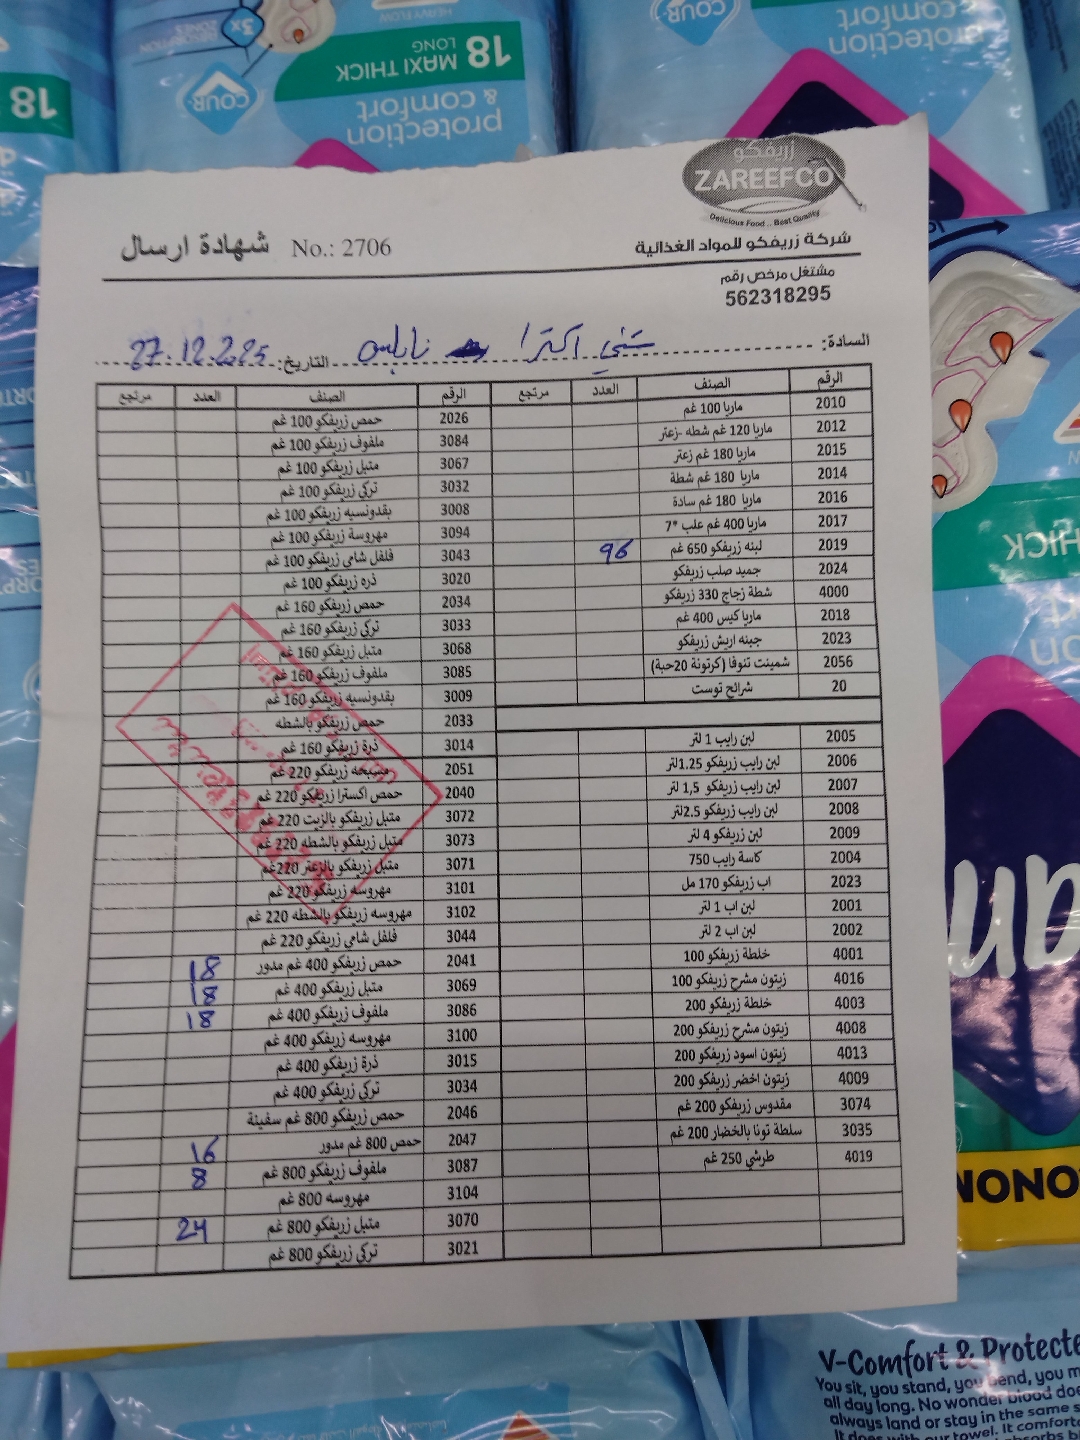 18 MAXI THICK
LONG
protection
& comfort
COUR
3x
18
زريفكو
ZAREEFCO
Delicious Food .. Best Quality
شركة زريفكو للمواد الغذائية
شهادة ارسال No.: 2706
مشتغل مرخص رقم
562318295
السادة: اكترا نابلس التاريخ: 27.12.2025
الرقم الصنف العدد مرتجع الرقم الصنف العدد مرتجع
2010 ماريا 100 غم
2012 ماريا 120 غم شطه -زعتر
2015 ماريا 180 غم زعتر
2014 ماريا 180 غم شطة
2016 ماريا 180 غم سادة
2017 ماريا 400 غم علب *7
2019 لبنه زريفكو 650 غم 96
2024 جميد صلب زريفكو
4000 شطة زجاج 330 زريفكو
2018 ماريا كيس 400 غم
2023 جبنه اريش زريفكو
2056 شمينت تنوفا (كرتونة 20حبة)
20 شرائح توست
2005 لبن رايب 1 لتر
2006 لبن رايب زريفكو 1.25لتر
2007 لبن رايب زريفكو 1,5 لتر
2008 لبن رايب زريفكو 2.5لتر
2009 لبن زريفكو 4 لتر
2004 كاسة رايب 750
2023 اب زريفكو 170 مل
2001 لبن اب 1 لتر
2002 لبن اب 2 لتر
4001 خلطة زريفكو 100
4016 زيتون مشرح زريفكو 100
4003 خلطة زريفكو 200
4008 زيتون مشرح زريفكو 200
4013 زيتون اسود زريفكو 200
4009 زيتون اخضر زريفكو 200
3074 مقدوس زريفكو 200 غم
3035 سلطة تونا بالخضار 200 غم
4019 طرشي 250 غم
2026 حمص زريفكو 100 غم
3084 ملفوف زريفكو 100 غم
3067 متبل زريفكو 100 غم
3032 تركي زريفكو 100 غم
3008 بقدونسيه زريفكو 100 غم
3094 مهروسة زريفكو 100 غم
3043 فلفل شامي زريفكو 100 غم
3020 ذره زريفكو 100 غم
2034 حمص زريفكو 160 غم
3033 تركي زريفكو 160 غم
3068 متبل زريفكو 160 غم
3085 ملفوف زريفكو 160 غم
3009 بقدونسيه زريفكو 160 غم
2033 حمص زريفكو بالشطه
3014 ذرة زريفكو 160 غم
2051 مسبحه زريفكو 220 غم
2040 حمص اكسترا زريفكو 220 غم
3072 متبل زريفكو بالزيت 220 غم
3073 متبل زريفكو بالشطه 220 غم
3071 متبل زريفكو بالزعتر 220غم
3101 مهروسه زريفكو 220 غم
3102 مهروسه زريفكو بالشطه 220 غم
3044 فلفل شامي زريفكو 220 غم
2041 حمص زريفكو 400 غم مدور 18
3069 متبل زريفكو 400 غم 18
3086 ملفوف زريفكو 400 غم 18
3100 مهروسه زريفكو 400 غم
3015 ذرة زريفكو 400 غم
3034 تركي زريفكو 400 غم
2046 حمص زريفكو 800 غم سفينة
2047 حمص 800 غم مدور 16
3087 ملفوف زريفكو 800 غم 8
3104 مهروسه 800 غم
3070 متبل زريفكو 800 غم 24
3021 تركي زريفكو 800 غم
V-Comfort & Protecte
You sit, you stand, you bend, you m
all day long. No wonder blood doe
always land or stay in the same s